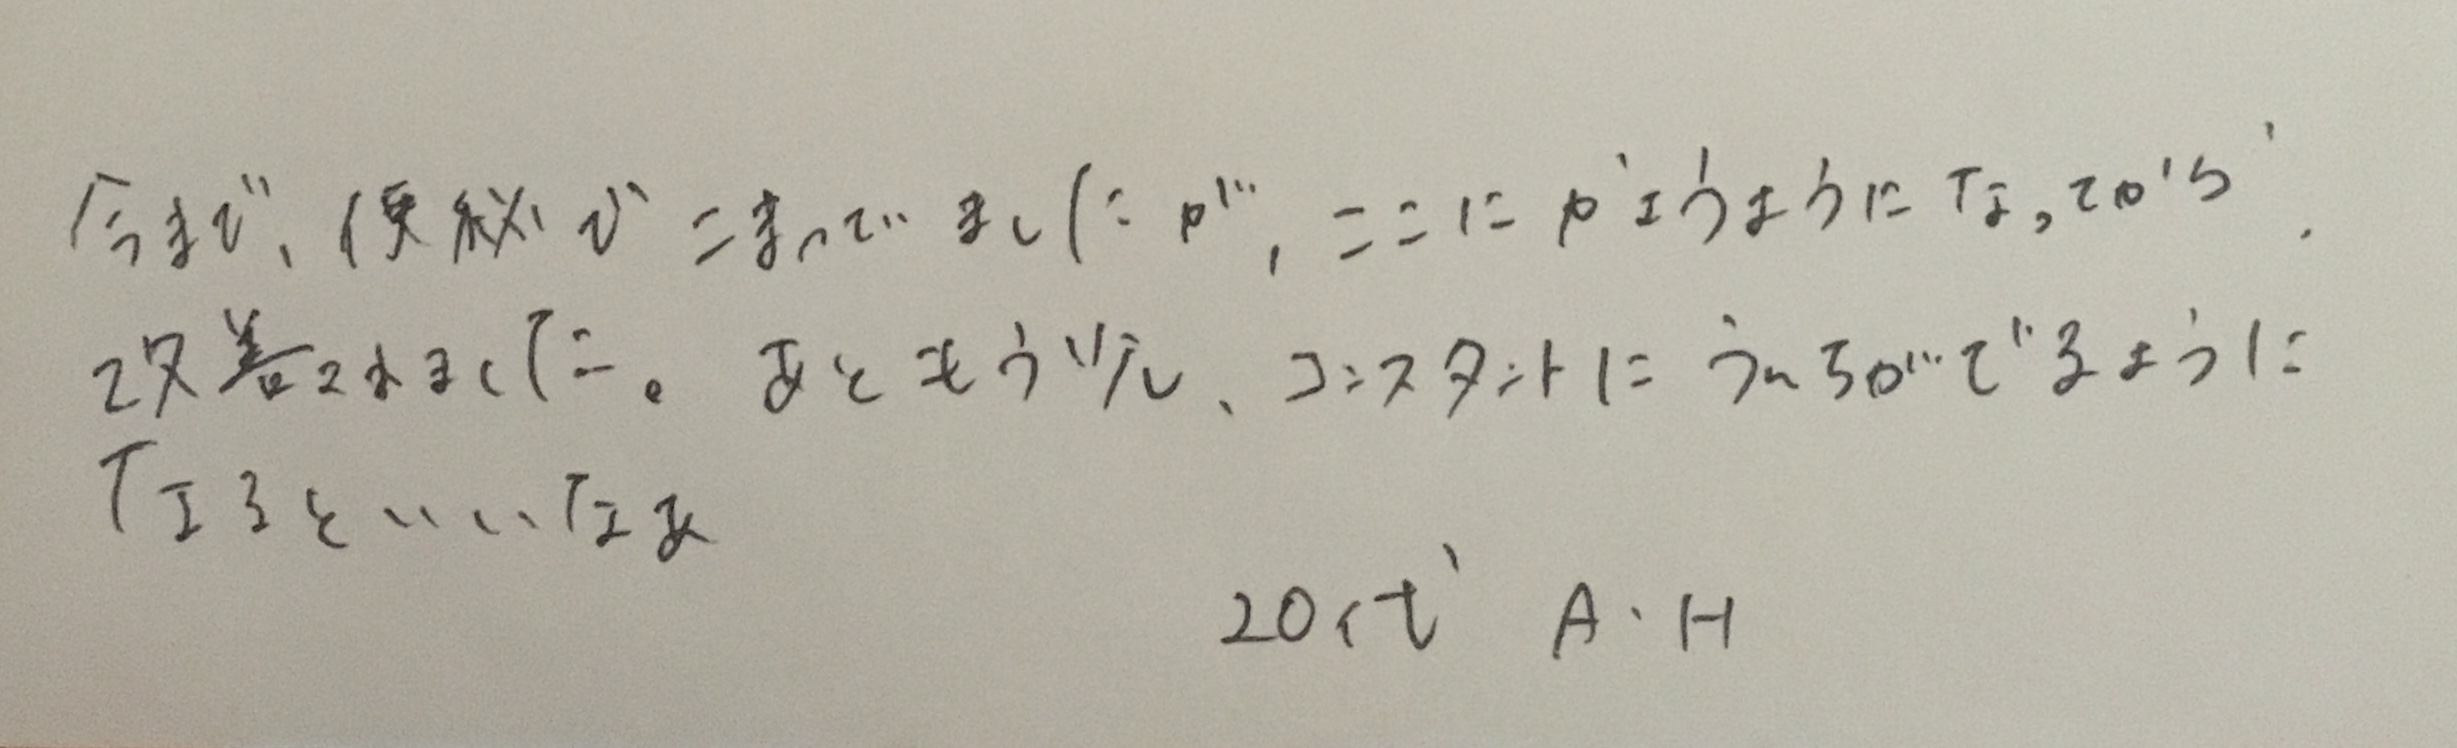 今まで、便秘でこまってでましたが、ここにかようようになってから、
改善されました。あともう少し、コンスタントにうんちがでるように
なるといいなあ
20代 A・H